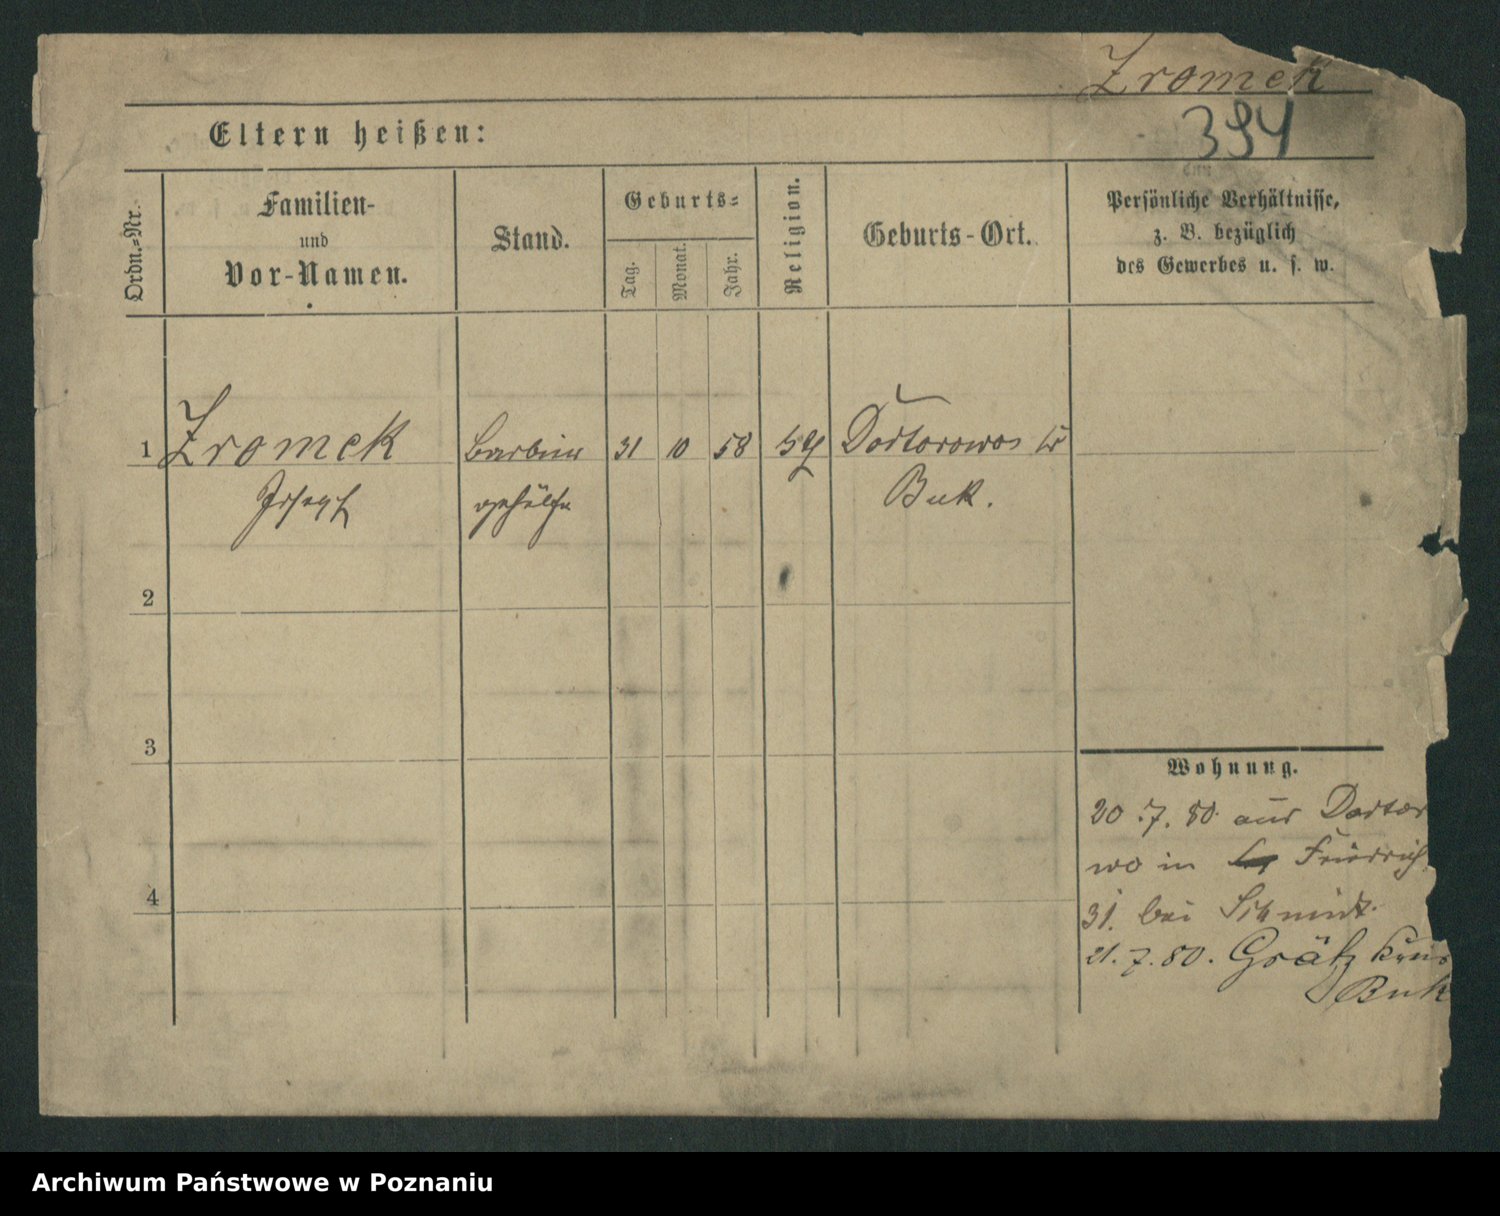 Zromek
394
Eltern heißen:
Ordn.=Nr.
Familien-
und
Vor-Namen.
Stand.
Geburts=
Tag.
Monat.
Jahr.
Religion.
Geburts-Ort.
Persönliche Verhältnisse,
z. B. bezüglich
des Gewerbes u. s. w.
1 Zromek Barbier 31 10 58 Dortorowo
Joseph gehülfe Buk.
2
3
4
Wohnung.
20.7.80. aus Dortor
wo in Friedrich
31. bei Schmidt.
21.7.80. Grätz Kreis
Buk
Archiwum Państwowe w Poznaniu